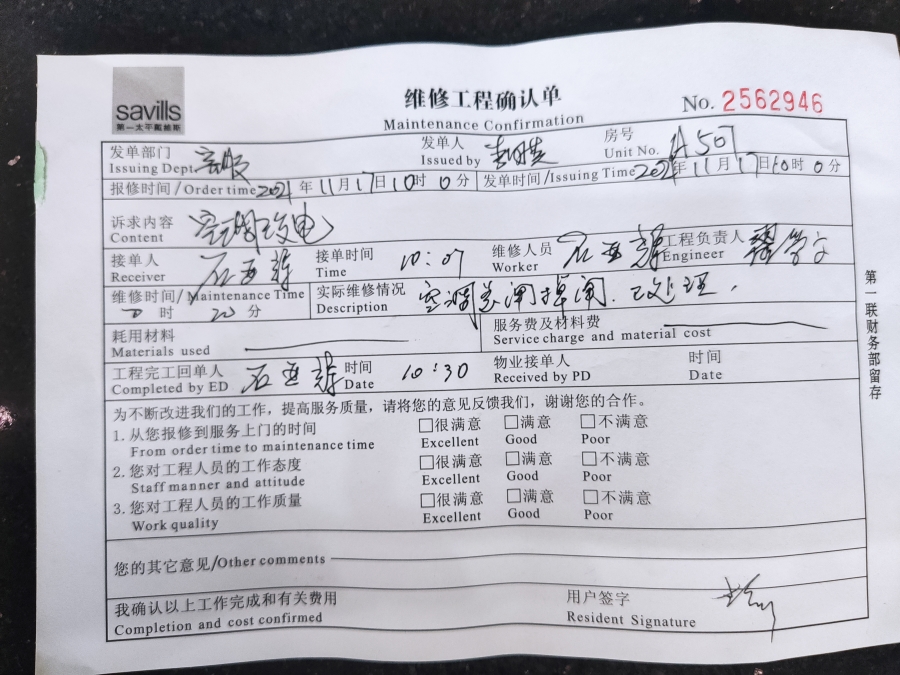 savills
第一太平戴维斯
维修工程确认单
Maintenance Confirmation
No. 2562946
发单部门 发单人 房号
Issuing Dept. 客服 Issued by Unit No. A507
报修时间/Order time 2021年11月17日10时0分 发单时间/Issuing Time 2021年11月17日10时0分
诉求内容 空调没电
Content
接单人 接单时间 维修人员 工程负责人
Receiver Time 10:07 Worker Engineer
维修时间/Maintenance Time 实际维修情况 空调总闸掉闸.已处理.
0时20分 Description
耗用材料 服务费及材料费
Materials used Service charge and material cost
工程完工回单人 时间 物业接单人 时间
Completed by ED Date 10:30 Received by PD Date
为不断改进我们的工作，提高服务质量，请将您的意见反馈我们，谢谢您的合作。
1.从您报修到服务上门的时间 □很满意 □满意 □不满意
From order time to maintenance time Excellent Good Poor
2.您对工程人员的工作态度 □很满意 □满意 □不满意
Staff manner and attitude Excellent Good Poor
3.您对工程人员的工作质量 □很满意 □满意 □不满意
Work quality Excellent Good Poor
您的其它意见/Other comments
我确认以上工作完成和有关费用 用户签字
Completion and cost confirmed Resident Signature
第一联财务部留存